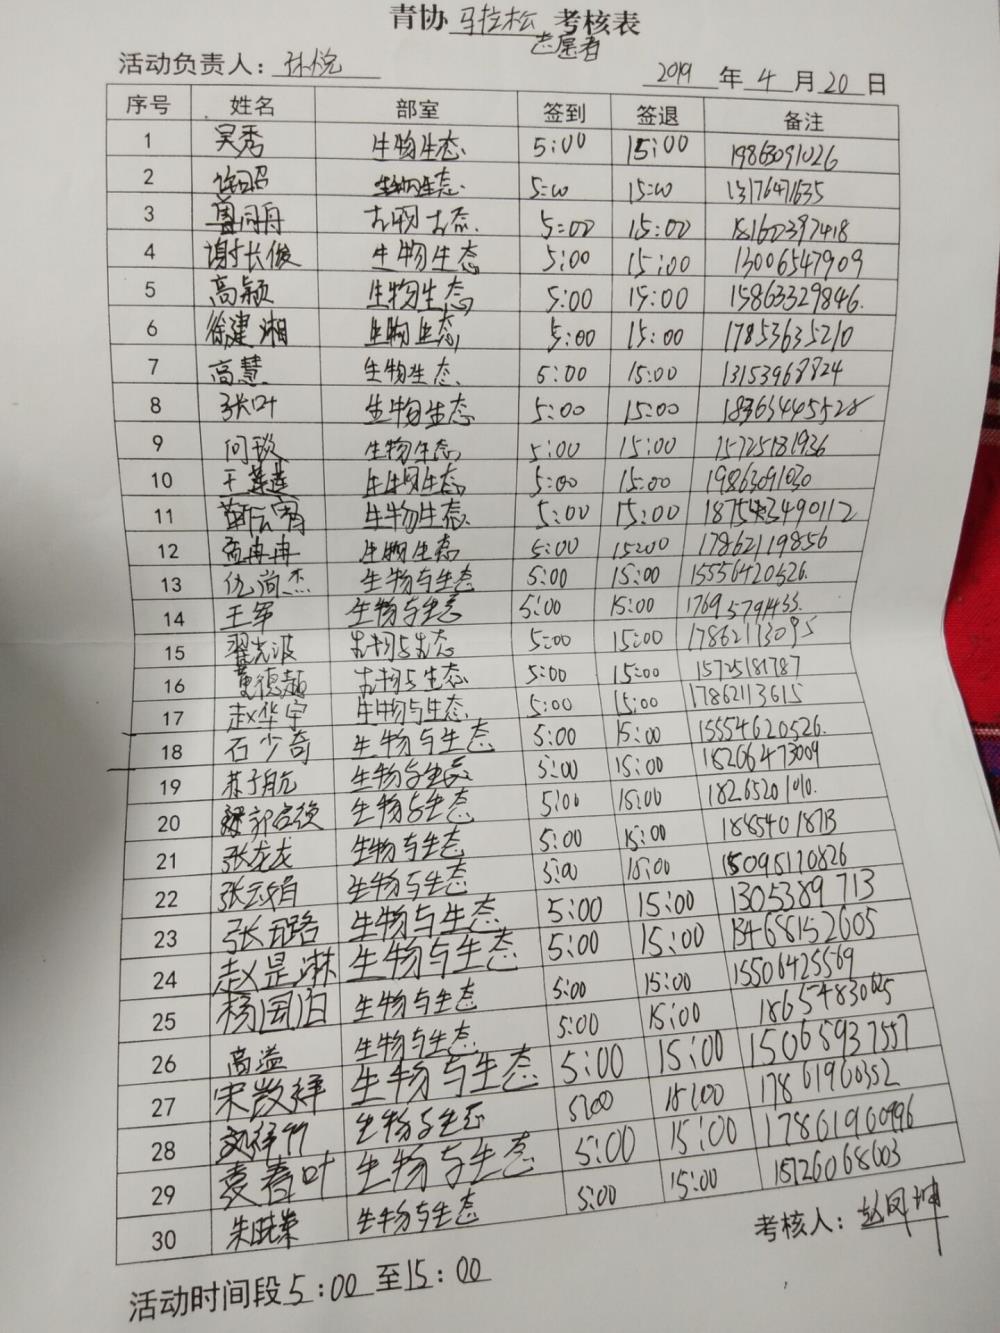 青协 马拉松 考核表
志愿者
活动负责人：孙悦 2019 年 4 月 20 日
序号 姓名 部室 签到 签退 备注
1 吴秀 生物生态 5:00 15:00 19863091026
2 生物生态 5:00 15:00 13176471635
3 生物生态 5:00 15:00 18160397418
4 谢长俊 生物生态 5:00 15:00 13006547909
5 高颖 生物生态 5:00 15:00 15863329846.
6 徐建湘 生物生态 5:00 15:00 17853635210
7 高慧 生物生态 5:00 15:00 13153968824
8 张叶 生物生态 5:00 15:00 18363445528
9 何玫 生物生态 5:00 15:00 15725181936
10 王莲莲 生物生态 5:00 15:00 19863091030
11 生物生态 5:00 15:00
12 孟冉冉 生物生态 5:00 15:00 17862119856
13 仇尚杰 生物与生态 5:00 15:00 15556420526.
14 王军 生物与生态 5:00 15:00
15 翟先波 生物与生态 5:00 15:00 17862113095
16 黄德超 生物与生态 5:00 15:00 15725181787
17 赵华宇 生物与生态 5:00 15:00 17862113615
18 石少奇 生物与生态 5:00 15:00 15554620526.
19 苏子航 生物与生态 5:00 15:00 18206473009
20 生物与生态 5:00 15:00
21 张龙龙 生物与生态 5:00 15:00
22 生物与生态 5:00 15:00 15095170826
23 张璐 生物与生态 5:00 15:00 1305389713
24 赵是淋 生物与生态 5:00 15:00 13468152605
25 杨国治 生物与生态 5:00 15:00 15506425569
26 高溢 生物与生态 5:00 15:00 18654830625
27 宋散祥 生物与生态 5:00 15:00 15068937557
28 刘祥竹 生物与生态 5:00 15:00 17861960352
29 姜春叶 生物与生态 5:00 15:00 17861960996
30 朱晓荣 生物与生态 5:00 15:00 15726068603
考核人：赵凤坤
活动时间段5:00至15:00